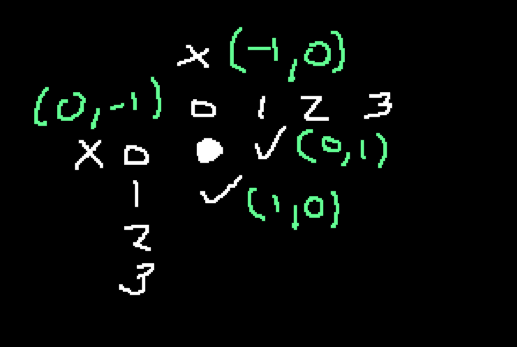 x (-1,0)
(0,-1) 0 1 2 3
X 0 ● ✓ (0,1)
1 ✓ (1,0)
2
3